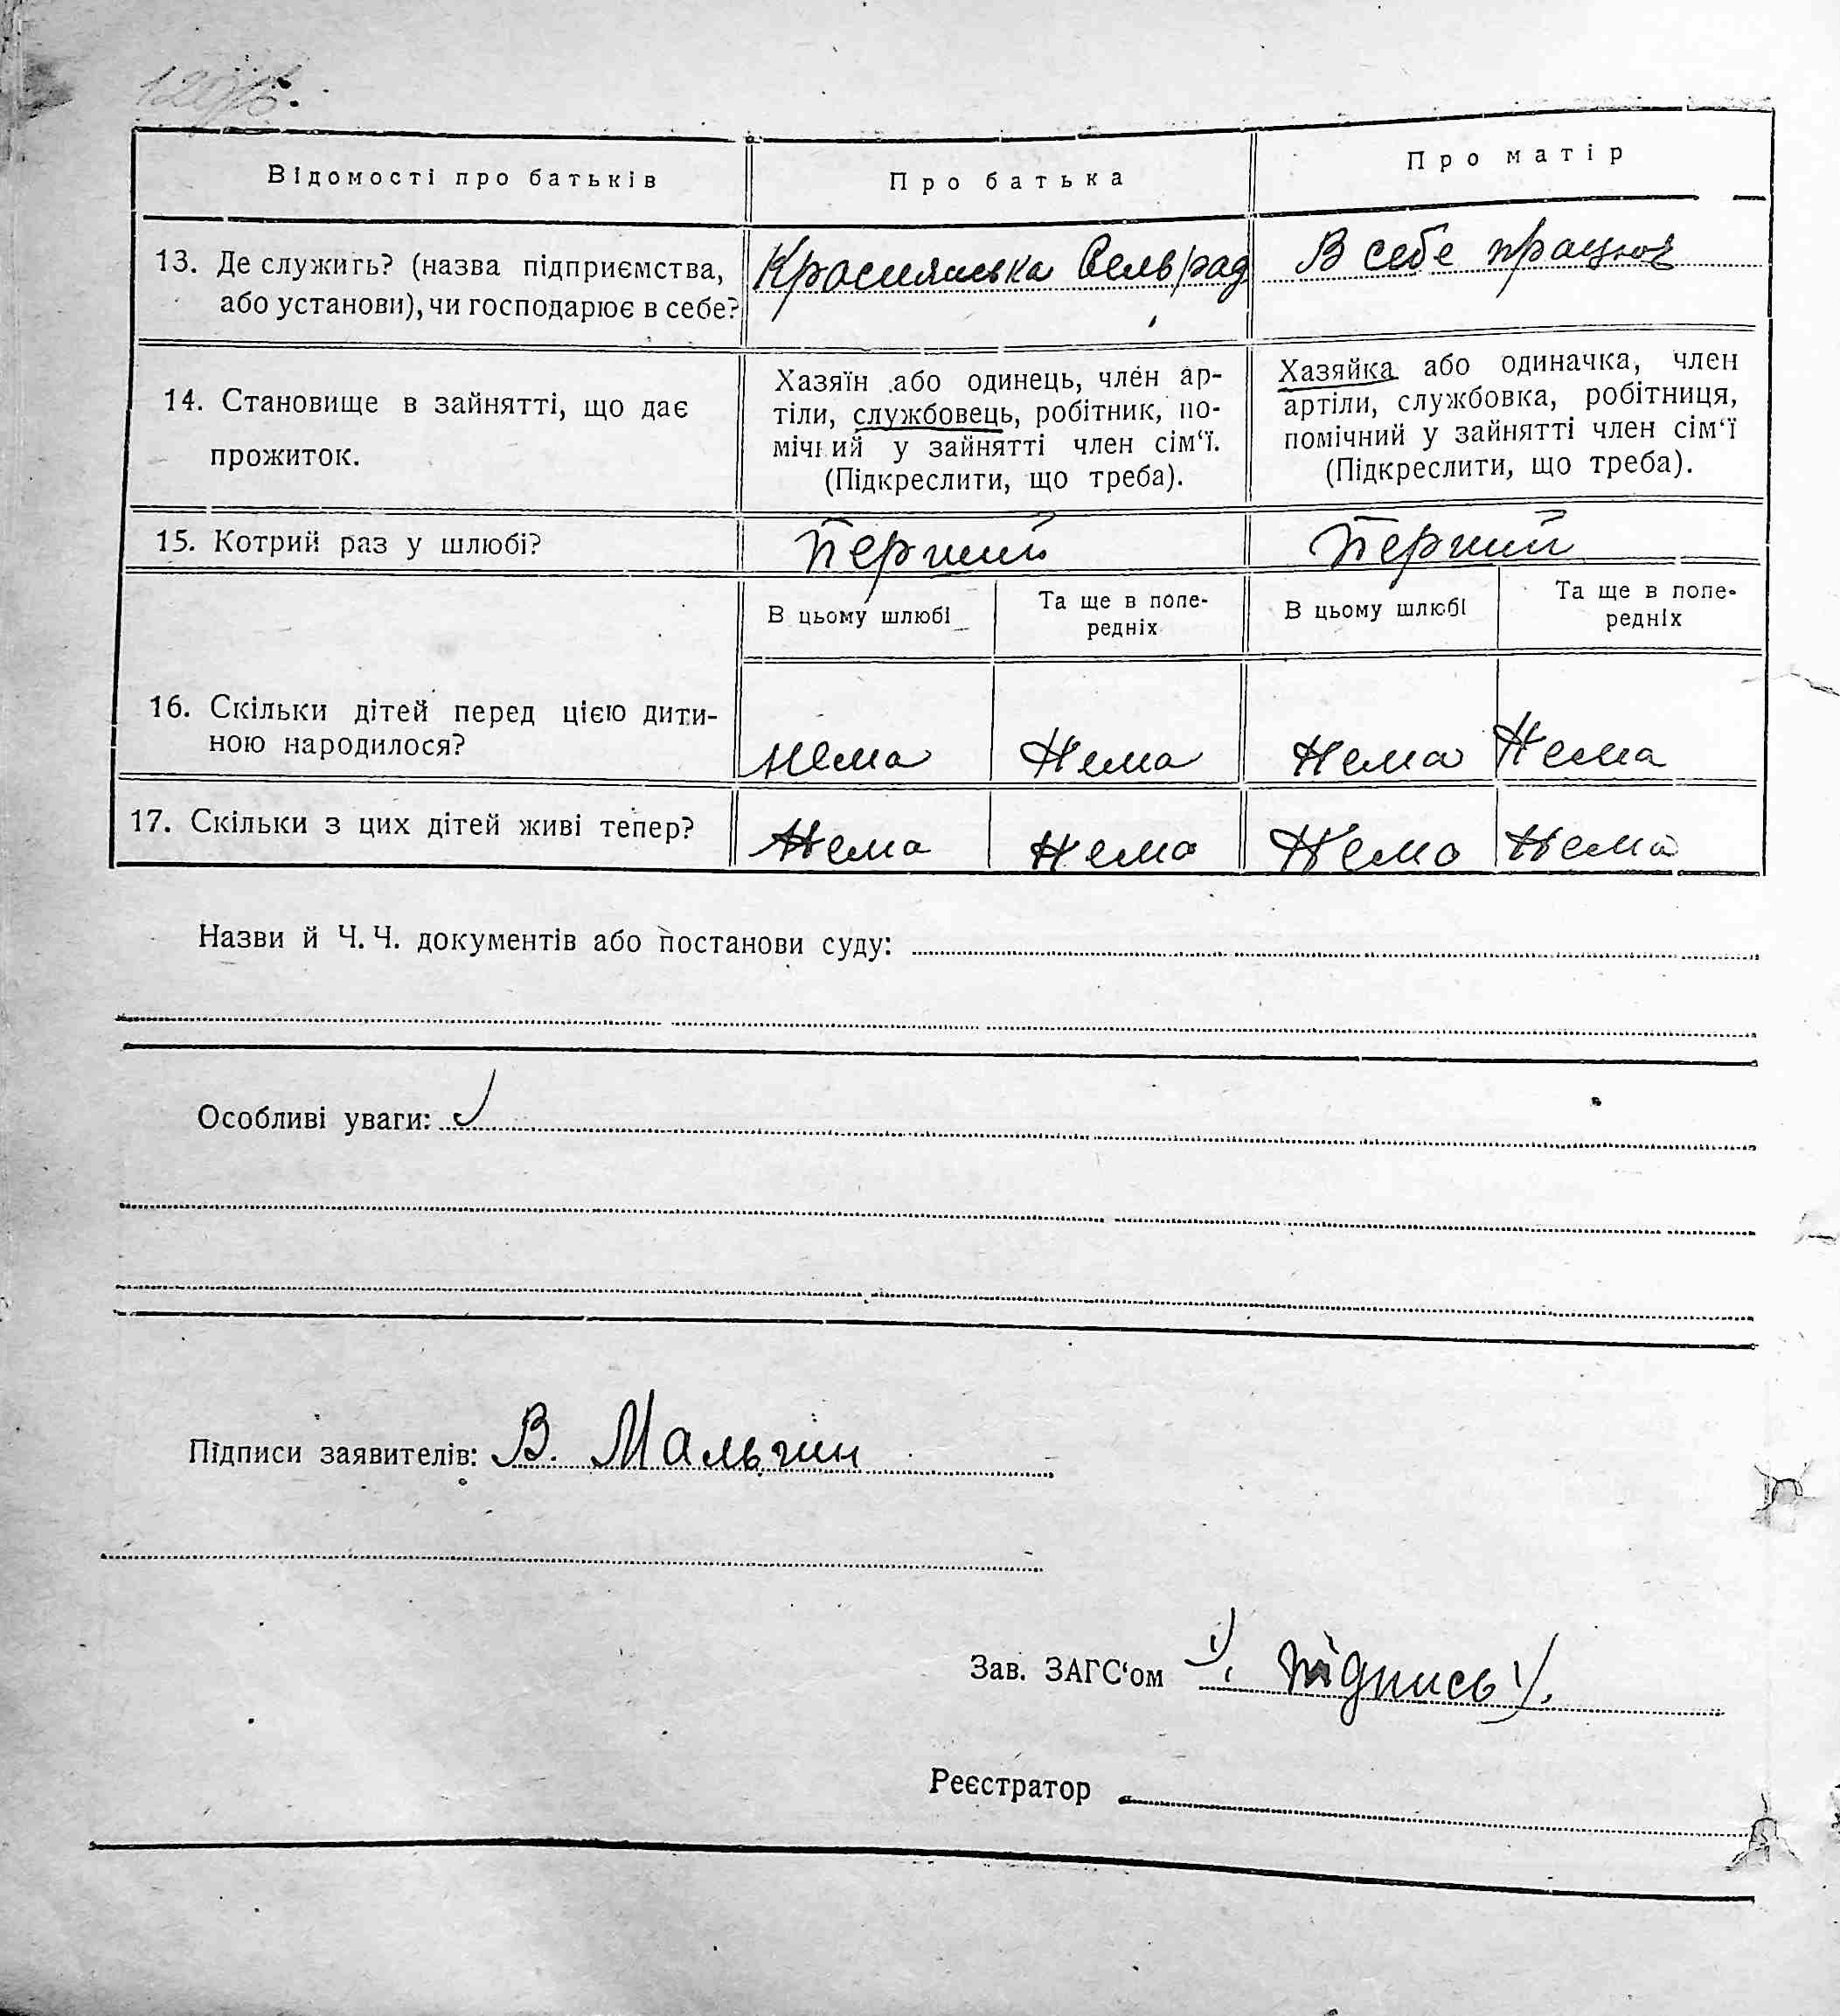 Відомості про батьків
Про батька
Про матір
13. Де служить? (назва підприємства,
або установи), чи господарює в себе?
Сельрад
В себе працює
14. Становище в зайнятті, що дає
прожиток.
Хазяїн або одинець, член ар-
тіли, службовець, робітник, по-
мічний у зайнятті член сім‘ї.
(Підкреслити, що треба).
Хазяйка або одиначка, член
артіли, службовка, робітниця,
помічний у зайнятті член сім‘ї
(Підкреслити, що треба).
15. Котрий раз у шлюбі?
Перший
Перший
16. Скільки дітей перед цією дити-
ною народилося?
В цьому шлюбі
Та ще в попе-
редніх
В цьому шлюбі
Та ще в попе-
редніх
Нема
Нема
Нема
Нема
17. Скільки з цих дітей живі тепер?
Нема
Нема
Нема
Нема
Назви й Ч. Ч. документів або постанови суду:
Особливі уваги:
Підписи заявителів: В. Мальгин
Зав. ЗАГС‘ом підпись
Реєстратор